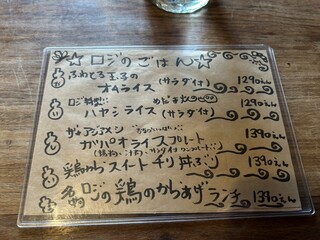 ☆ロジのごはん☆
ふわとろ玉子の
オムライス (サラダ付) 1290えん
ロジ特製!!
ハヤシライス (サラダ付) 1290えん
ガパオライスプレート 1390えん
鶏からスイートチリ丼 1390えん
ロジの鶏のからあげランチ 1390えん